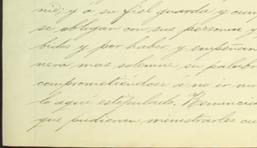 nio; y á su fiel guarda y cum
se obligan con sus personas y
bidos y por haber y empeñan
nera mas solemne su palabra
comprometiéndose á no ir ni
lo aquí estipulado. Renuncian
que pudieran ministrarles cu